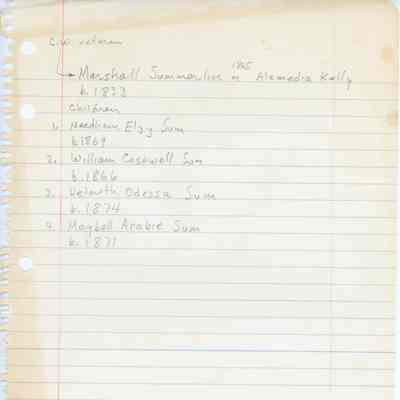 C.W. veteran
1865
Marshall Summerlin m Alemedia Kelly
b. 1833
Children
1. Needham Elzy Sum
b. 1869
2. William Caswell Sum
b. 1866
3. Odessa Sum
b. 1874
4. Maybell Arabie Sum
b. 1871